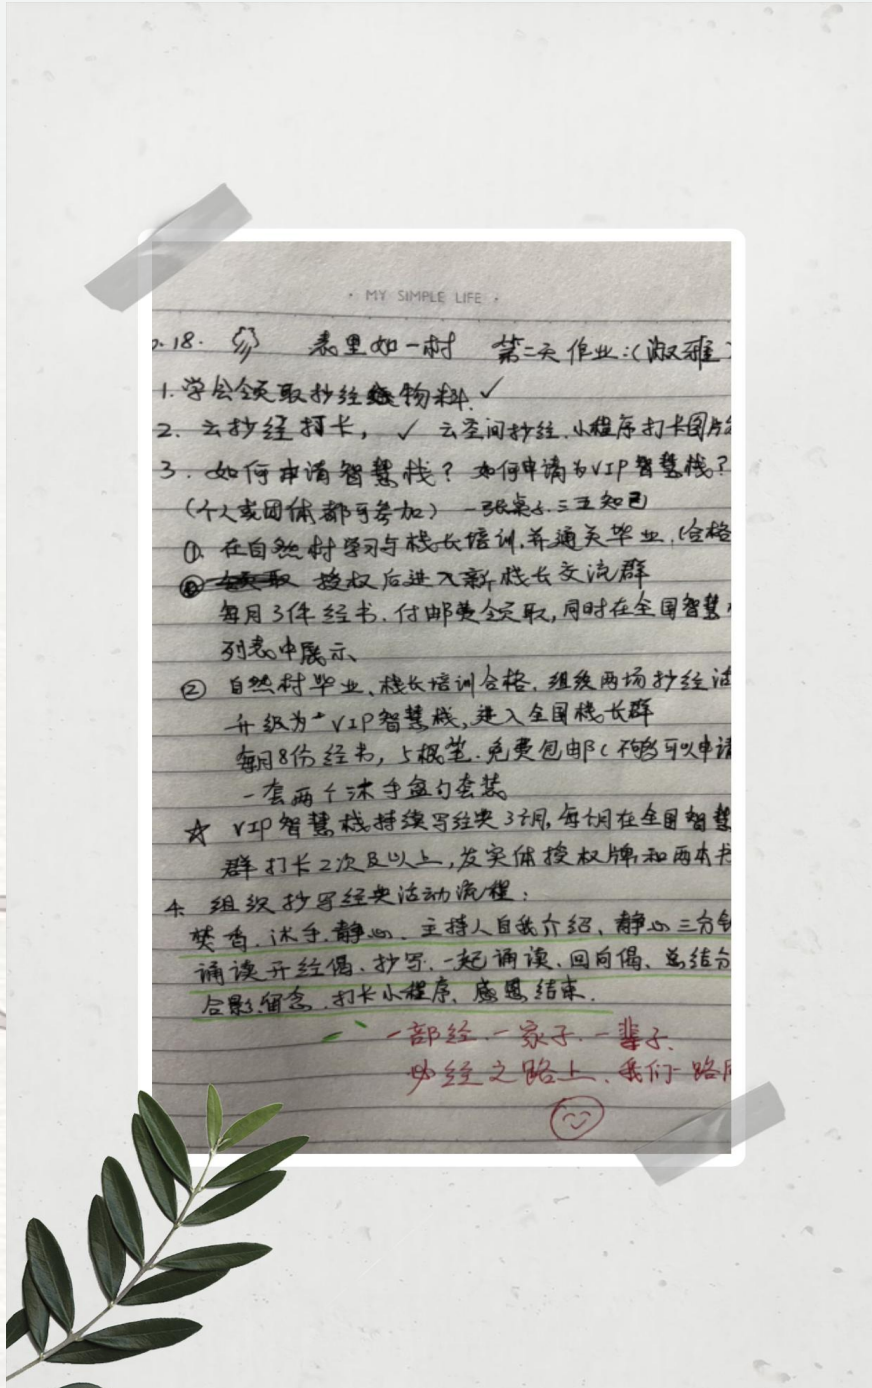 · MY SIMPLE LIFE ·
.18. 表里如一村 第二天作业:(淑雅
1.学会领取抄经物料.✓
2. 云抄经打卡, ✓ 云空间抄经.小程序打卡图片
3. 如何申请智慧栈? 如何申请为VIP智慧栈?
(个人或团体都可参加) 一张桌子.三五知己
①. 在自然村学习与栈长培训.并通关毕业.(合格
授权后进入新栈长交流群
每月3件经书.付邮费领取,同时在全国智慧
列表中展示、
② 自然村毕业、栈长培训合格.组织两场抄经活
升级为 VIP智慧栈,进入全国栈长群
每月8份经书, 5根笔.免费包邮(不够可以申请
一套两个沐手盆的套装
☆ VIP智慧栈持续写经典3个月,每个月在全国智慧
群打卡2次及以上,发实体授权牌和两本书
4. 组织抄写经典活动流程:
焚香.沐手.静心、主持人自我介绍、静心三分钟
诵读开经偈、抄写.一起诵读、回向偈、总结分
合影留念.打卡小程序、感恩结束.
一部经.一家子.一辈子.
抄经之路上、我们一路同